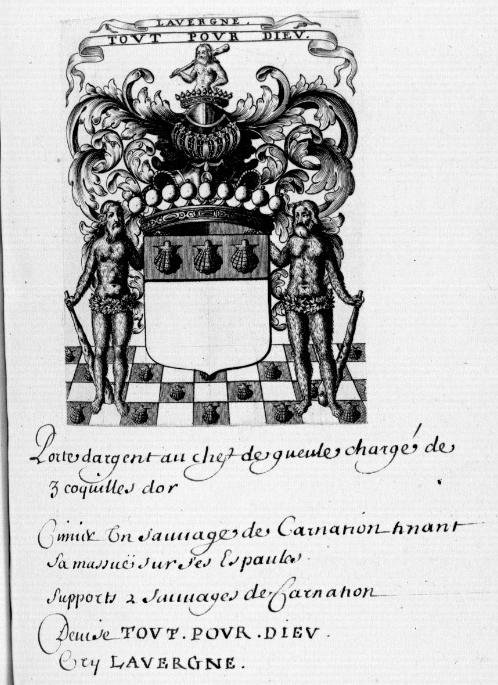 LAVERGNE.
TOVT POVR DIEV.
Porte dargent au chef de gueule chargé de
3 coquilles dor
Cimier Un sauuage de Carnation tinant
sa massuë sur ses Espaules.
supports 2 sauuages de Carnation
Deuise TOVT. POVR. DIEV.
Cry LAVERGNE.